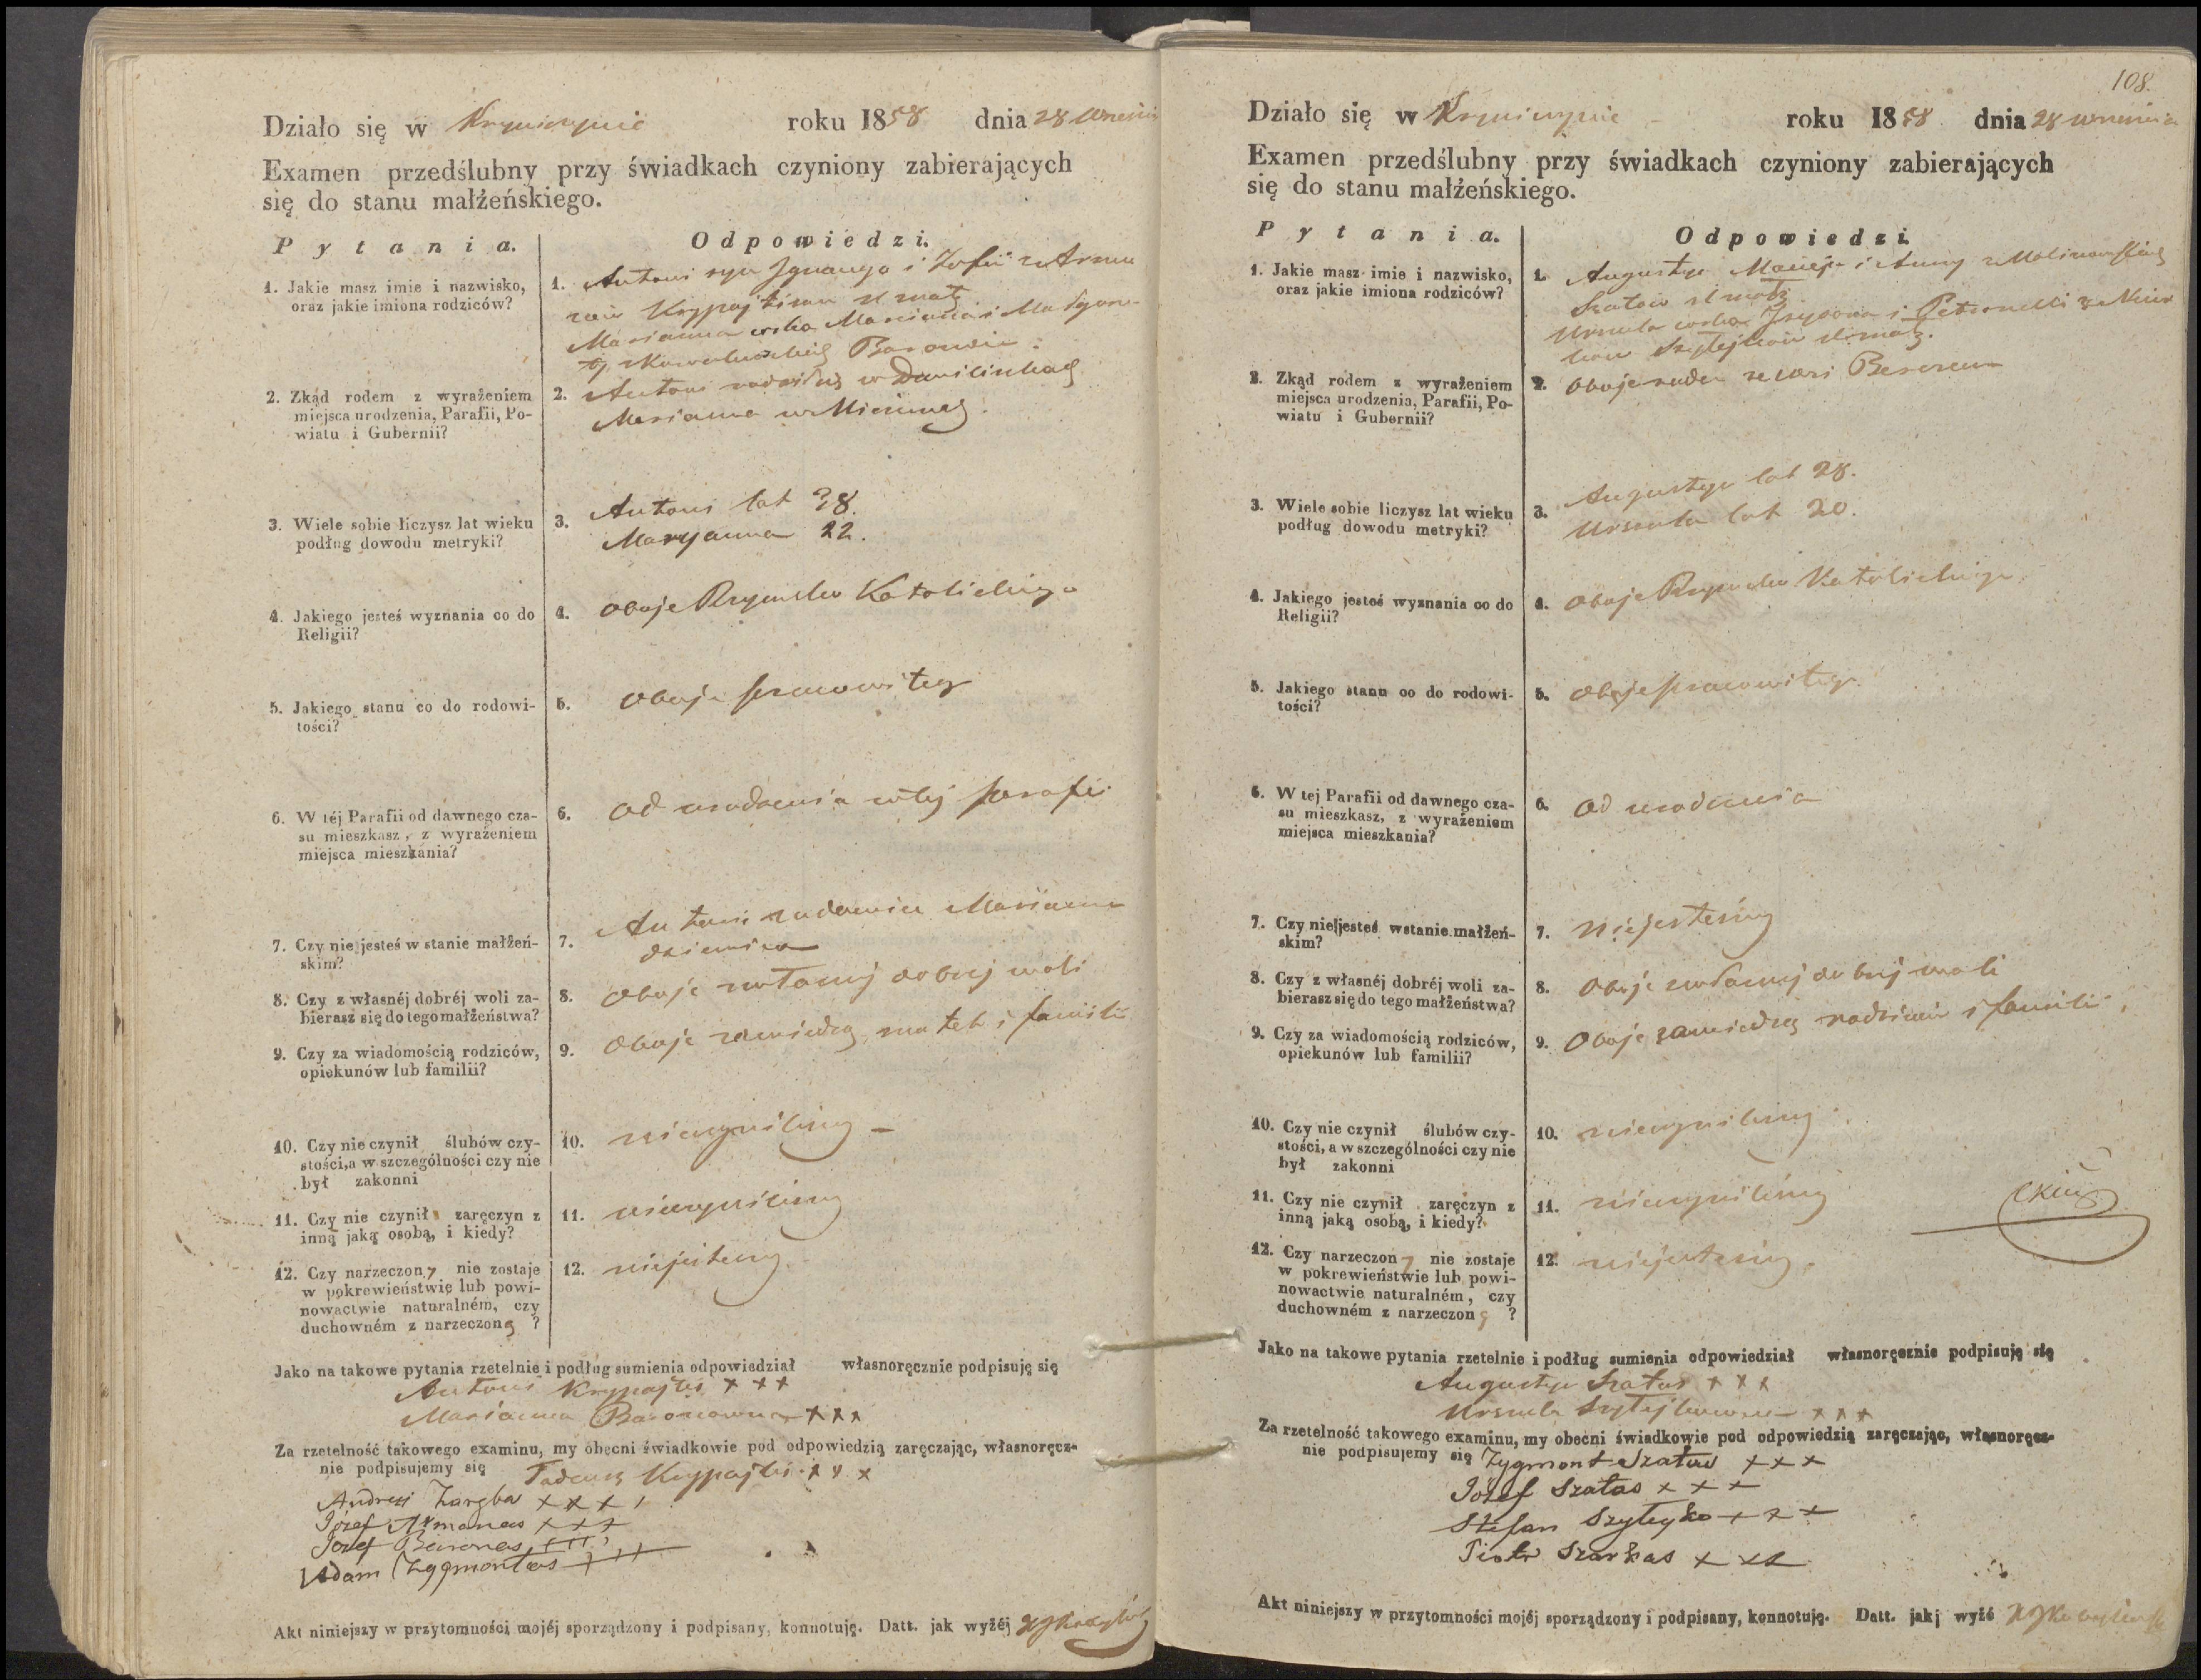 Działo się w roku 1858 dnia 28
Examen przedślubny przy świadkach czyniony zabierających
się do stanu małżeńskiego.
Pytania. Odpowiedzi.
1. Jakie masz imie i nazwisko,
oraz jakie imiona rodziców?
1. Antoni syn i Zofii
Marianna
2. Zkąd rodem z wyrażeniem
miejsca urodzenia, Parafii, Po-
wiatu i Gubernii?
2. Antoni w
Marianna w
3. Wiele sobie liczysz lat wieku
podług dowodu metryki?
3. Antoni lat 28.
Maryanna 22.
4. Jakiego jesteś wyznania co do
Religii?
4. Oboje Rzymsko Katolickiego
5. Jakiego stanu co do rodowi-
tości?
5. Oboje pracowitego
6. W téj Parafii od dawnego cza-
su mieszkasz, z wyrażeniem
miejsca mieszkania?
6. Od urodzenia w tej parafii
7. Czy nie jesteś w stanie małżeń-
skim?
7. Antoni Marianna
8. Czy z własnéj dobréj woli za-
bierasz się do tego małżeństwa?
8. Oboje dobrej woli
9. Czy za wiadomością rodziców,
opiekunów lub familii?
9. Oboje matek i familii
10. Czy nie czynił ślubów czy-
stości, a w szczególności czy nie
był zakonni
10. nieczyniliśmy –
11. Czy nie czynił zaręczyn z
inną jaką osobą, i kiedy?
11. nieczyniliśmy
12. Czy narzeczony nie zostaje
w pokrewieństwie lub powi-
nowactwie naturalném, czy
duchowném z narzeczoną ?
12. niejesteśmy
Jako na takowe pytania rzetelnie i podług sumienia odpowiedział własnoręcznie podpisuję się
Antoni Krypajtis + + +
Marianna Baronowna + + +
Za rzetelność takowego examinu, my obecni świadkowie pod odpowiedzią zaręczając, własnoręcz-
nie podpisujemy się Tadeusz Krypajtis + + +
Andrzej + + +
Józef + + +
Józef Baronas + + +
Adam Zygmontas + + +
Akt niniejszy w przytomności mojéj sporządzony i podpisany, konnotuję. Datt. jak wyżéj
108.
Działo się w roku 1858 dnia 28 września
Examen przedślubny przy świadkach czyniony zabierających
się do stanu małżeńskiego.
Pytania. Odpowiedzi
1. Jakie masz imie i nazwisko,
oraz jakie imiona rodziców?
1. Augustyn Macieja i Anny z Malinowskich
Urszula
2. Zkąd rodem z wyrażeniem
miejsca urodzenia, Parafii, Po-
wiatu i Gubernii?
2. Oboje rodem ze wsi
3. Wiele sobie liczysz lat wieku
podług dowodu metryki?
3. Augustyn lat 28.
Urszula lat 20.
4. Jakiego jesteś wyznania co do
Religii?
4. Oboje Rzymsko Katolickiego
5. Jakiego stanu co do rodowi-
tości?
5. Oboje pracowitego
6. W tej Parafii od dawnego cza-
su mieszkasz, z wyrażeniem
miejsca mieszkania?
6. Od urodzenia
7. Czy nie jesteś wstanie małżeń-
skim?
7. niejesteśmy
8. Czy z własnéj dobréj woli za-
bierasz się do tego małżeństwa?
8. Oboje dobrej woli
9. Czy za wiadomością rodziców,
opiekunów lub familii?
9. Oboje rodziców i familii
10. Czy nie czynił ślubów czy-
stości, a w szczególności czy nie
był zakonni
10. nieczyniliśmy
11. Czy nie czynił zaręczyn z
inną jaką osobą, i kiedy?
11. nieczyniliśmy
12. Czy narzeczony nie zostaje
w pokrewieństwie lub powi-
nowactwie naturalném, czy
duchowném z narzeczoną ?
12. niejesteśmy
Jako na takowe pytania rzetelnie i podług sumienia odpowiedział własnoręcznie podpisuję się
Augustyn Szatas + + +
Urszula + + +
Za rzetelność takowego examinu, my obecni świadkowie pod odpowiedzią zaręczając, własnoręcz-
nie podpisujemy się Zygmont Szatas + + +
Józef Szatas + + +
Stefan Szyteyko + + +
Piotr Szarkas + + +
Akt niniejszy w przytomności mojéj sporządzony i podpisany, konnotuję. Datt. jakj wyżé